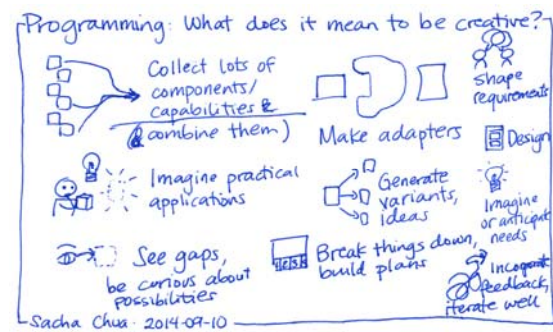 Programming: What does it mean to be creative?
Collect lots of
components/
capabilities &
(& combine them)
Make adapters
shape
requirements
Design
Imagine practical
applications
Generate
variants,
ideas
Imagine
or anticipate
needs
See gaps,
be curious about
possibilities
Break things down,
build plans
Incorporate
feedback,
iterate well
Sacha Chua · 2014-09-10